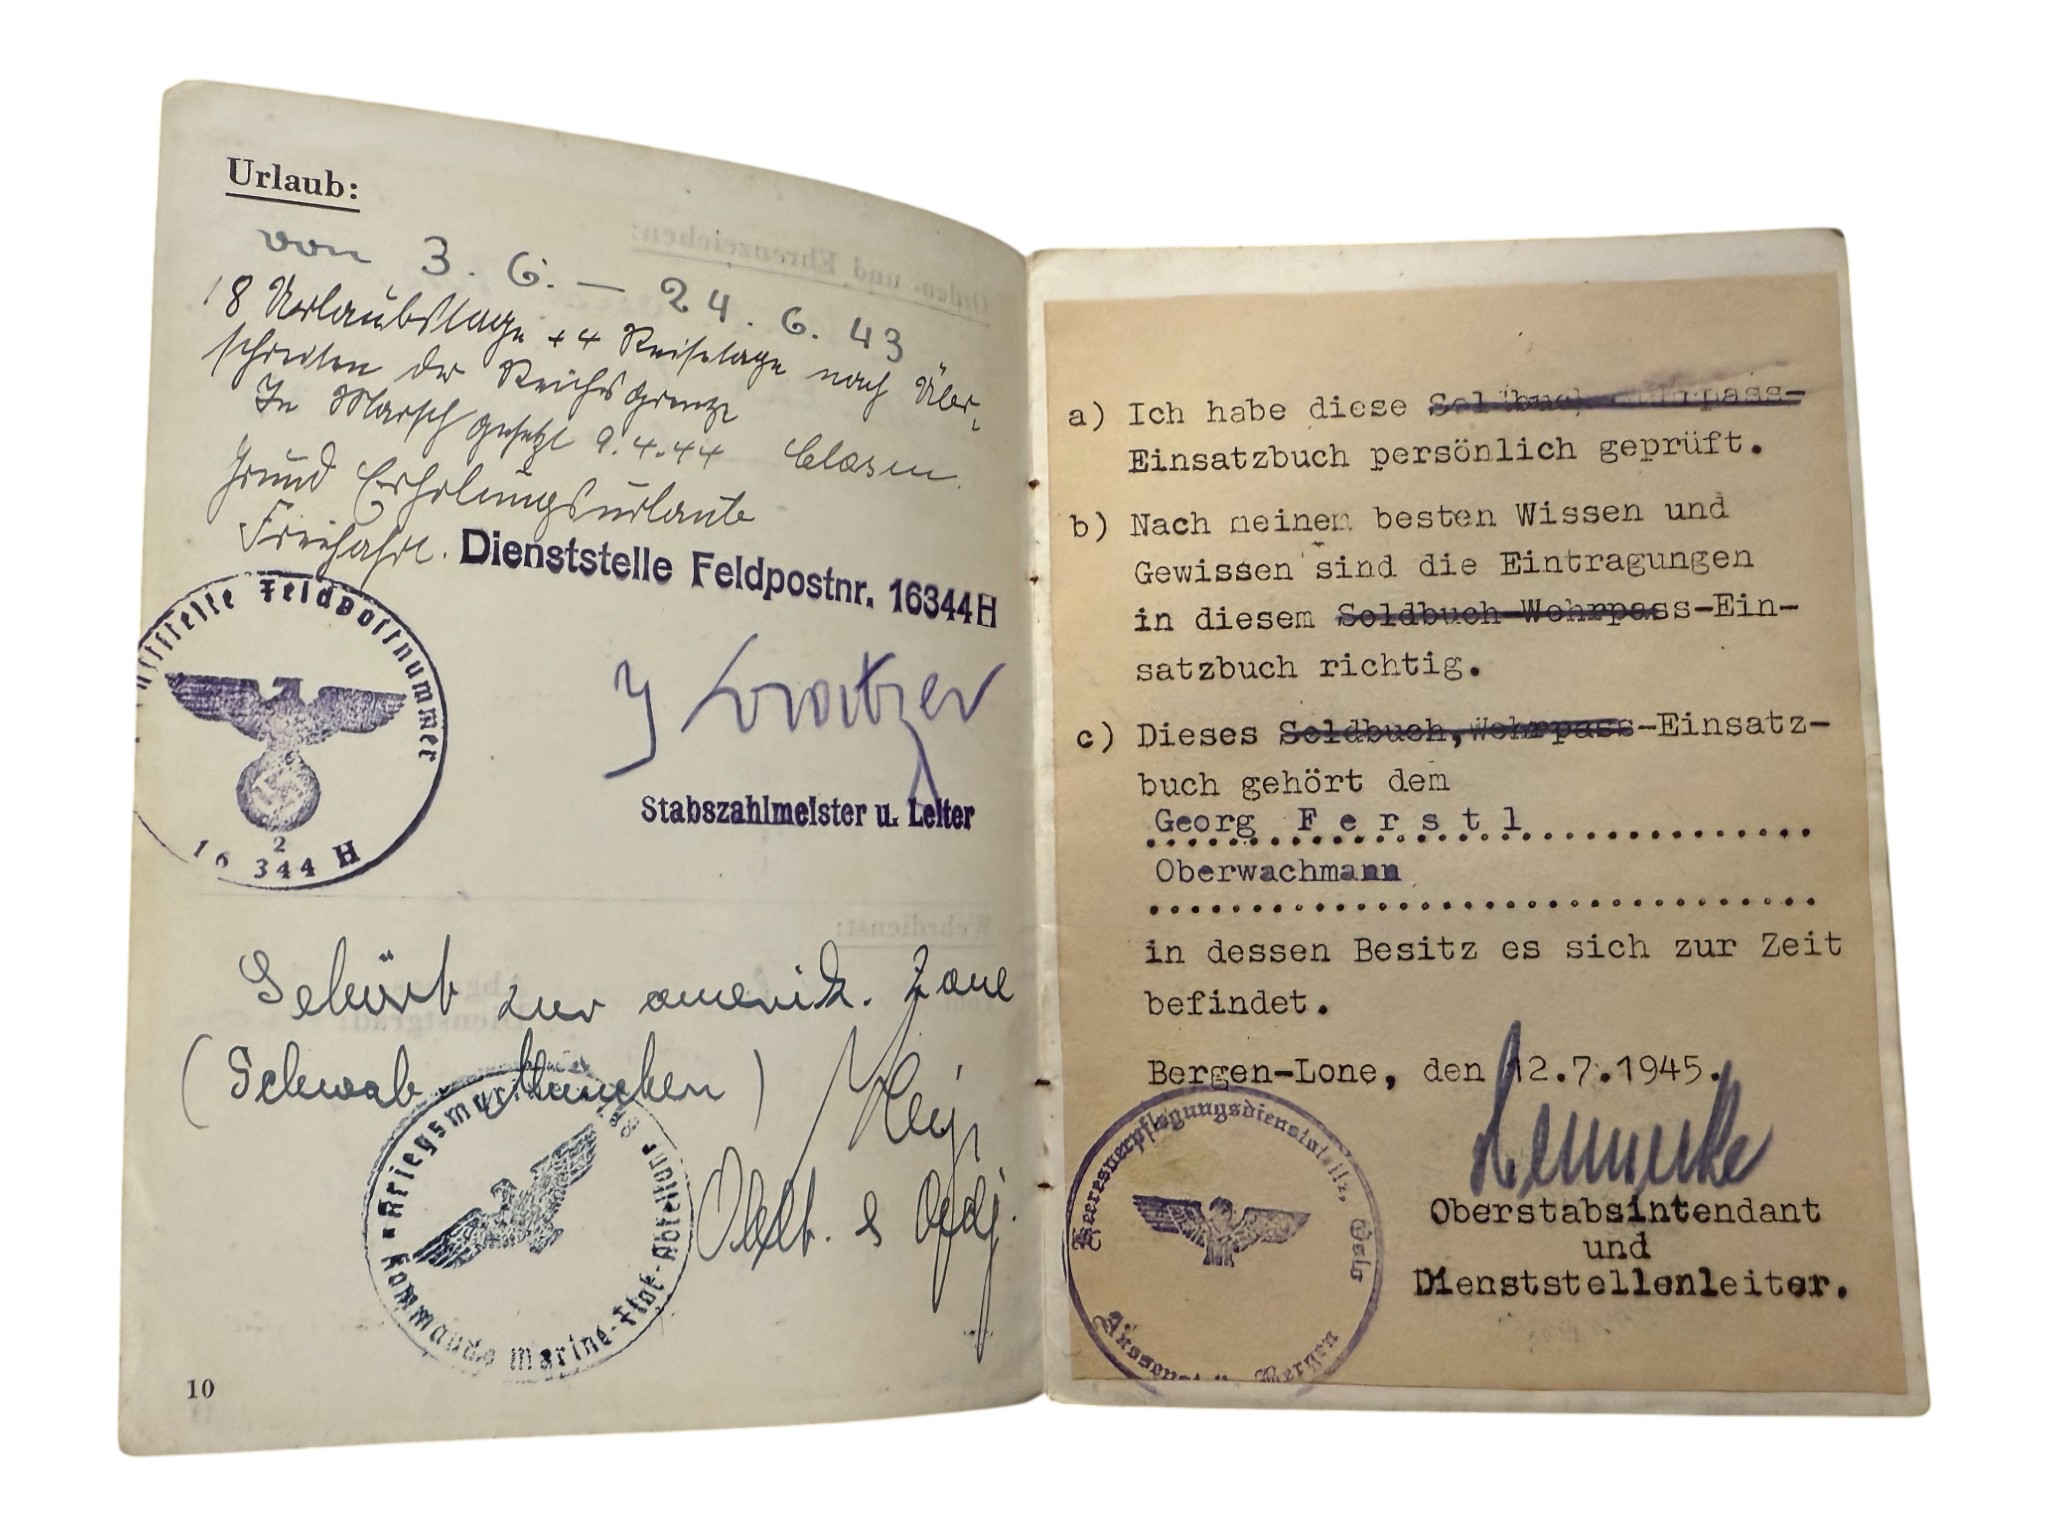 Urlaub:
von 3. 6. – 24. 6. 43
18 Urlaubstage + 4 Reisetage nach Über-
schreiten der Reichsgrenze
In Marsch gesetzt 9.4.44
Grund Erholungsurlaub
Freifahrt.
Dienststelle Feldpostnr. 16344H
Dienststelle Feldpostnummer
2
16344 H
Stabszahlmeister u. Leiter
Gehört zur amerik. Zone
(Schwab München)
Kommando Marine-Flak-Abteilung
Kriegsmarine
10
a) Ich habe diese Soldbuch-Wehrpass-
Einsatzbuch persönlich geprüft.
b) Nach meinem besten Wissen und
Gewissen sind die Eintragungen
in diesem Soldbuch-Wehrpass-Ein-
satzbuch richtig.
c) Dieses Soldbuch,Wehrpass-Einsatz-
buch gehört dem
Georg F e r s t l
Oberwachmann
in dessen Besitz es sich zur Zeit
befindet.
Bergen-Lone, den 12.7.1945.
Oberstabsintendant
und
Dienststellenleiter.
Heeresverpflegungsdienststelle, Oslo
Aussenstelle Bergen